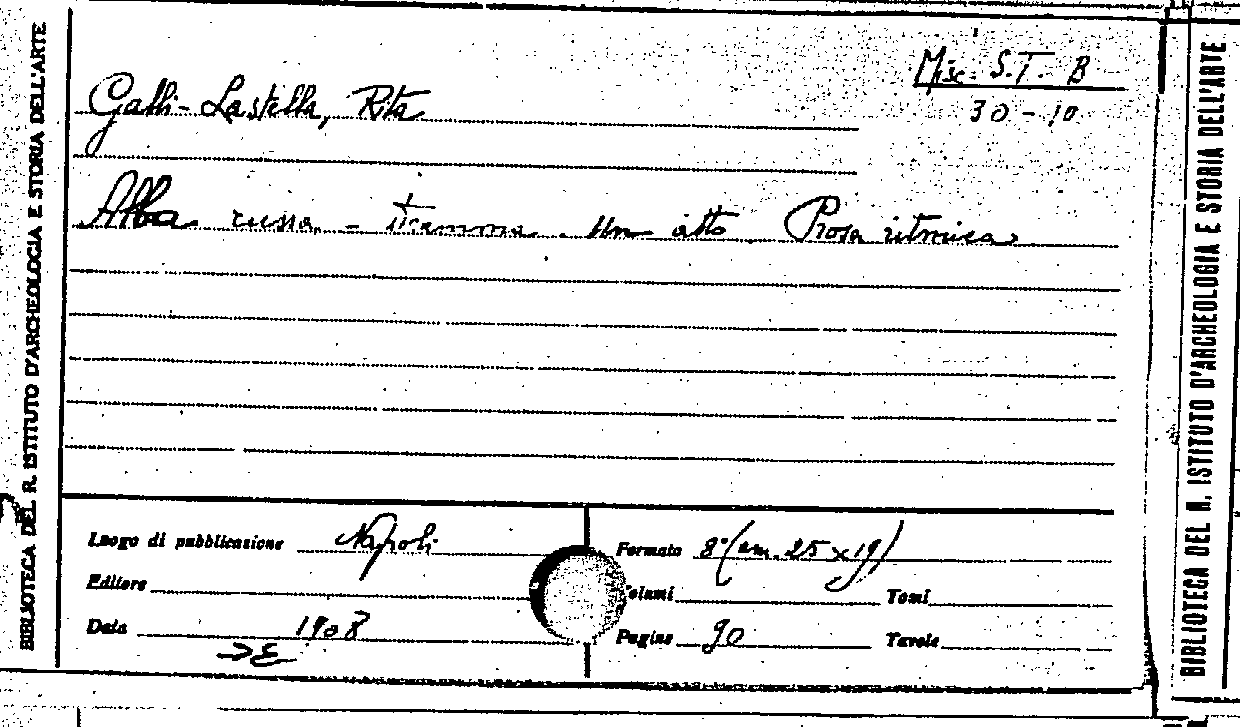 BIBLIOTECA DEL R. ISTITUTO D'ARCHEOLOGIA E STORIA DELL'ARTE
Misc. S.T. B
30-10
Galli-Lastella, Rita
Alba russa - dramma. Un atto Prosa ritmica
Luogo di pubblicazione Napoli
Formato 8° (cm. 25 x 19)
Editore
Volumi
Tomi
Data 1908
Pagine 90
Tavole
BIBLIOTECA DEL R. ISTITUTO D'ARCHEOLOGIA E STORIA DELL'ARTE